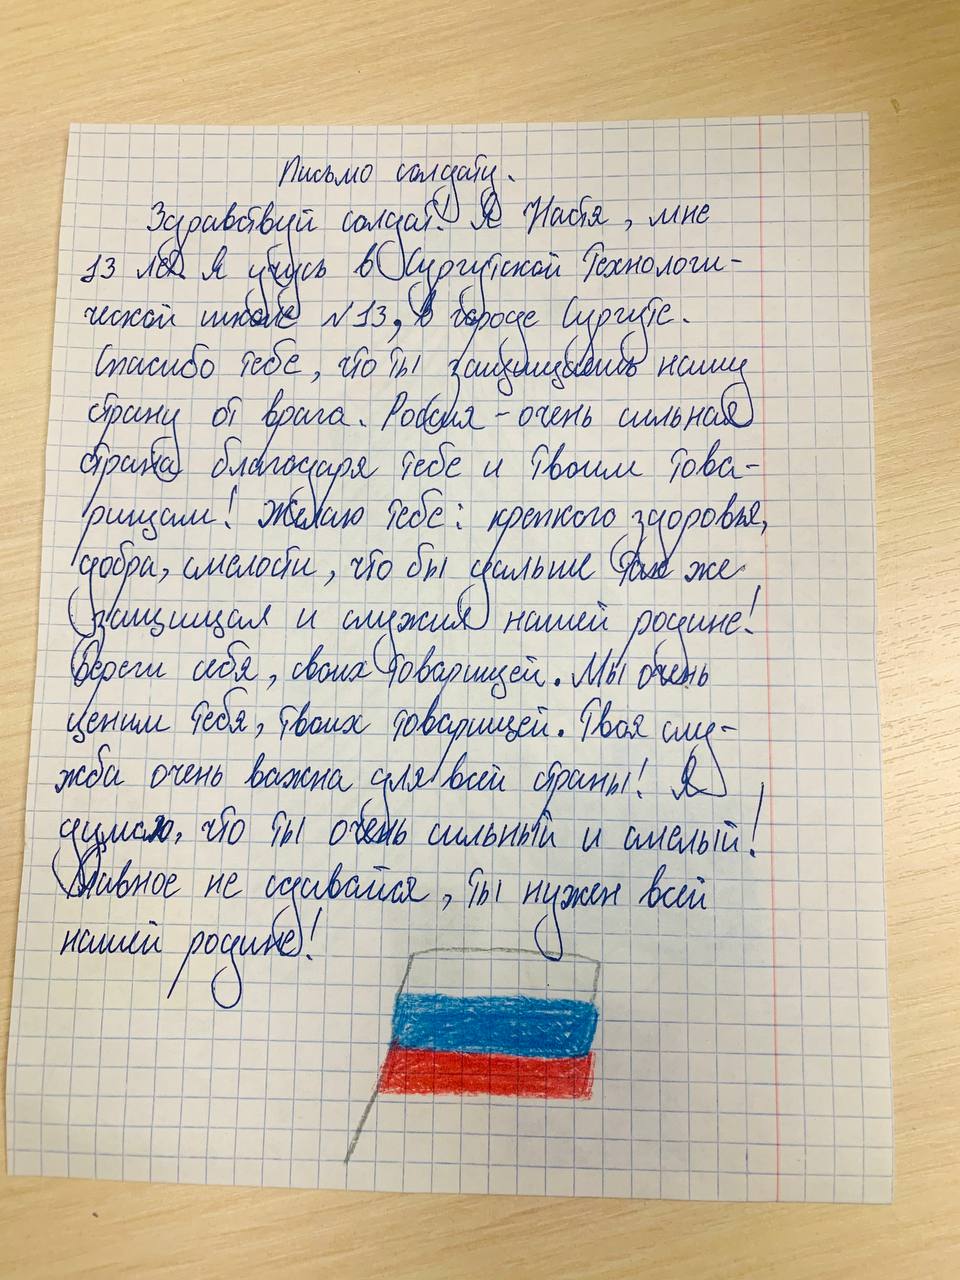 Письмо солдату.
Здравствуй солдат! Я Настя, мне
13 лет. Я учусь в Сургутской Технологи-
ческой школе №13, в городе Сургуте.
Спасибо тебе, что ты защищаешь нашу
страну от врага. Россия - очень сильная
страна благодаря тебе и твоим това-
рищам! Желаю тебе: крепкого здоровья,
добра, смелости, что бы дальше так же
защищал и служил нашей родине!
Береги себя, своих товарищей. Мы очень
ценим тебя, твоих товарищей. Твоя слу-
жба очень важна для всей страны! Я
думаю, что ты очень сильный и смелый!
Главное не сдавайся, ты нужен всей
нашей родине!